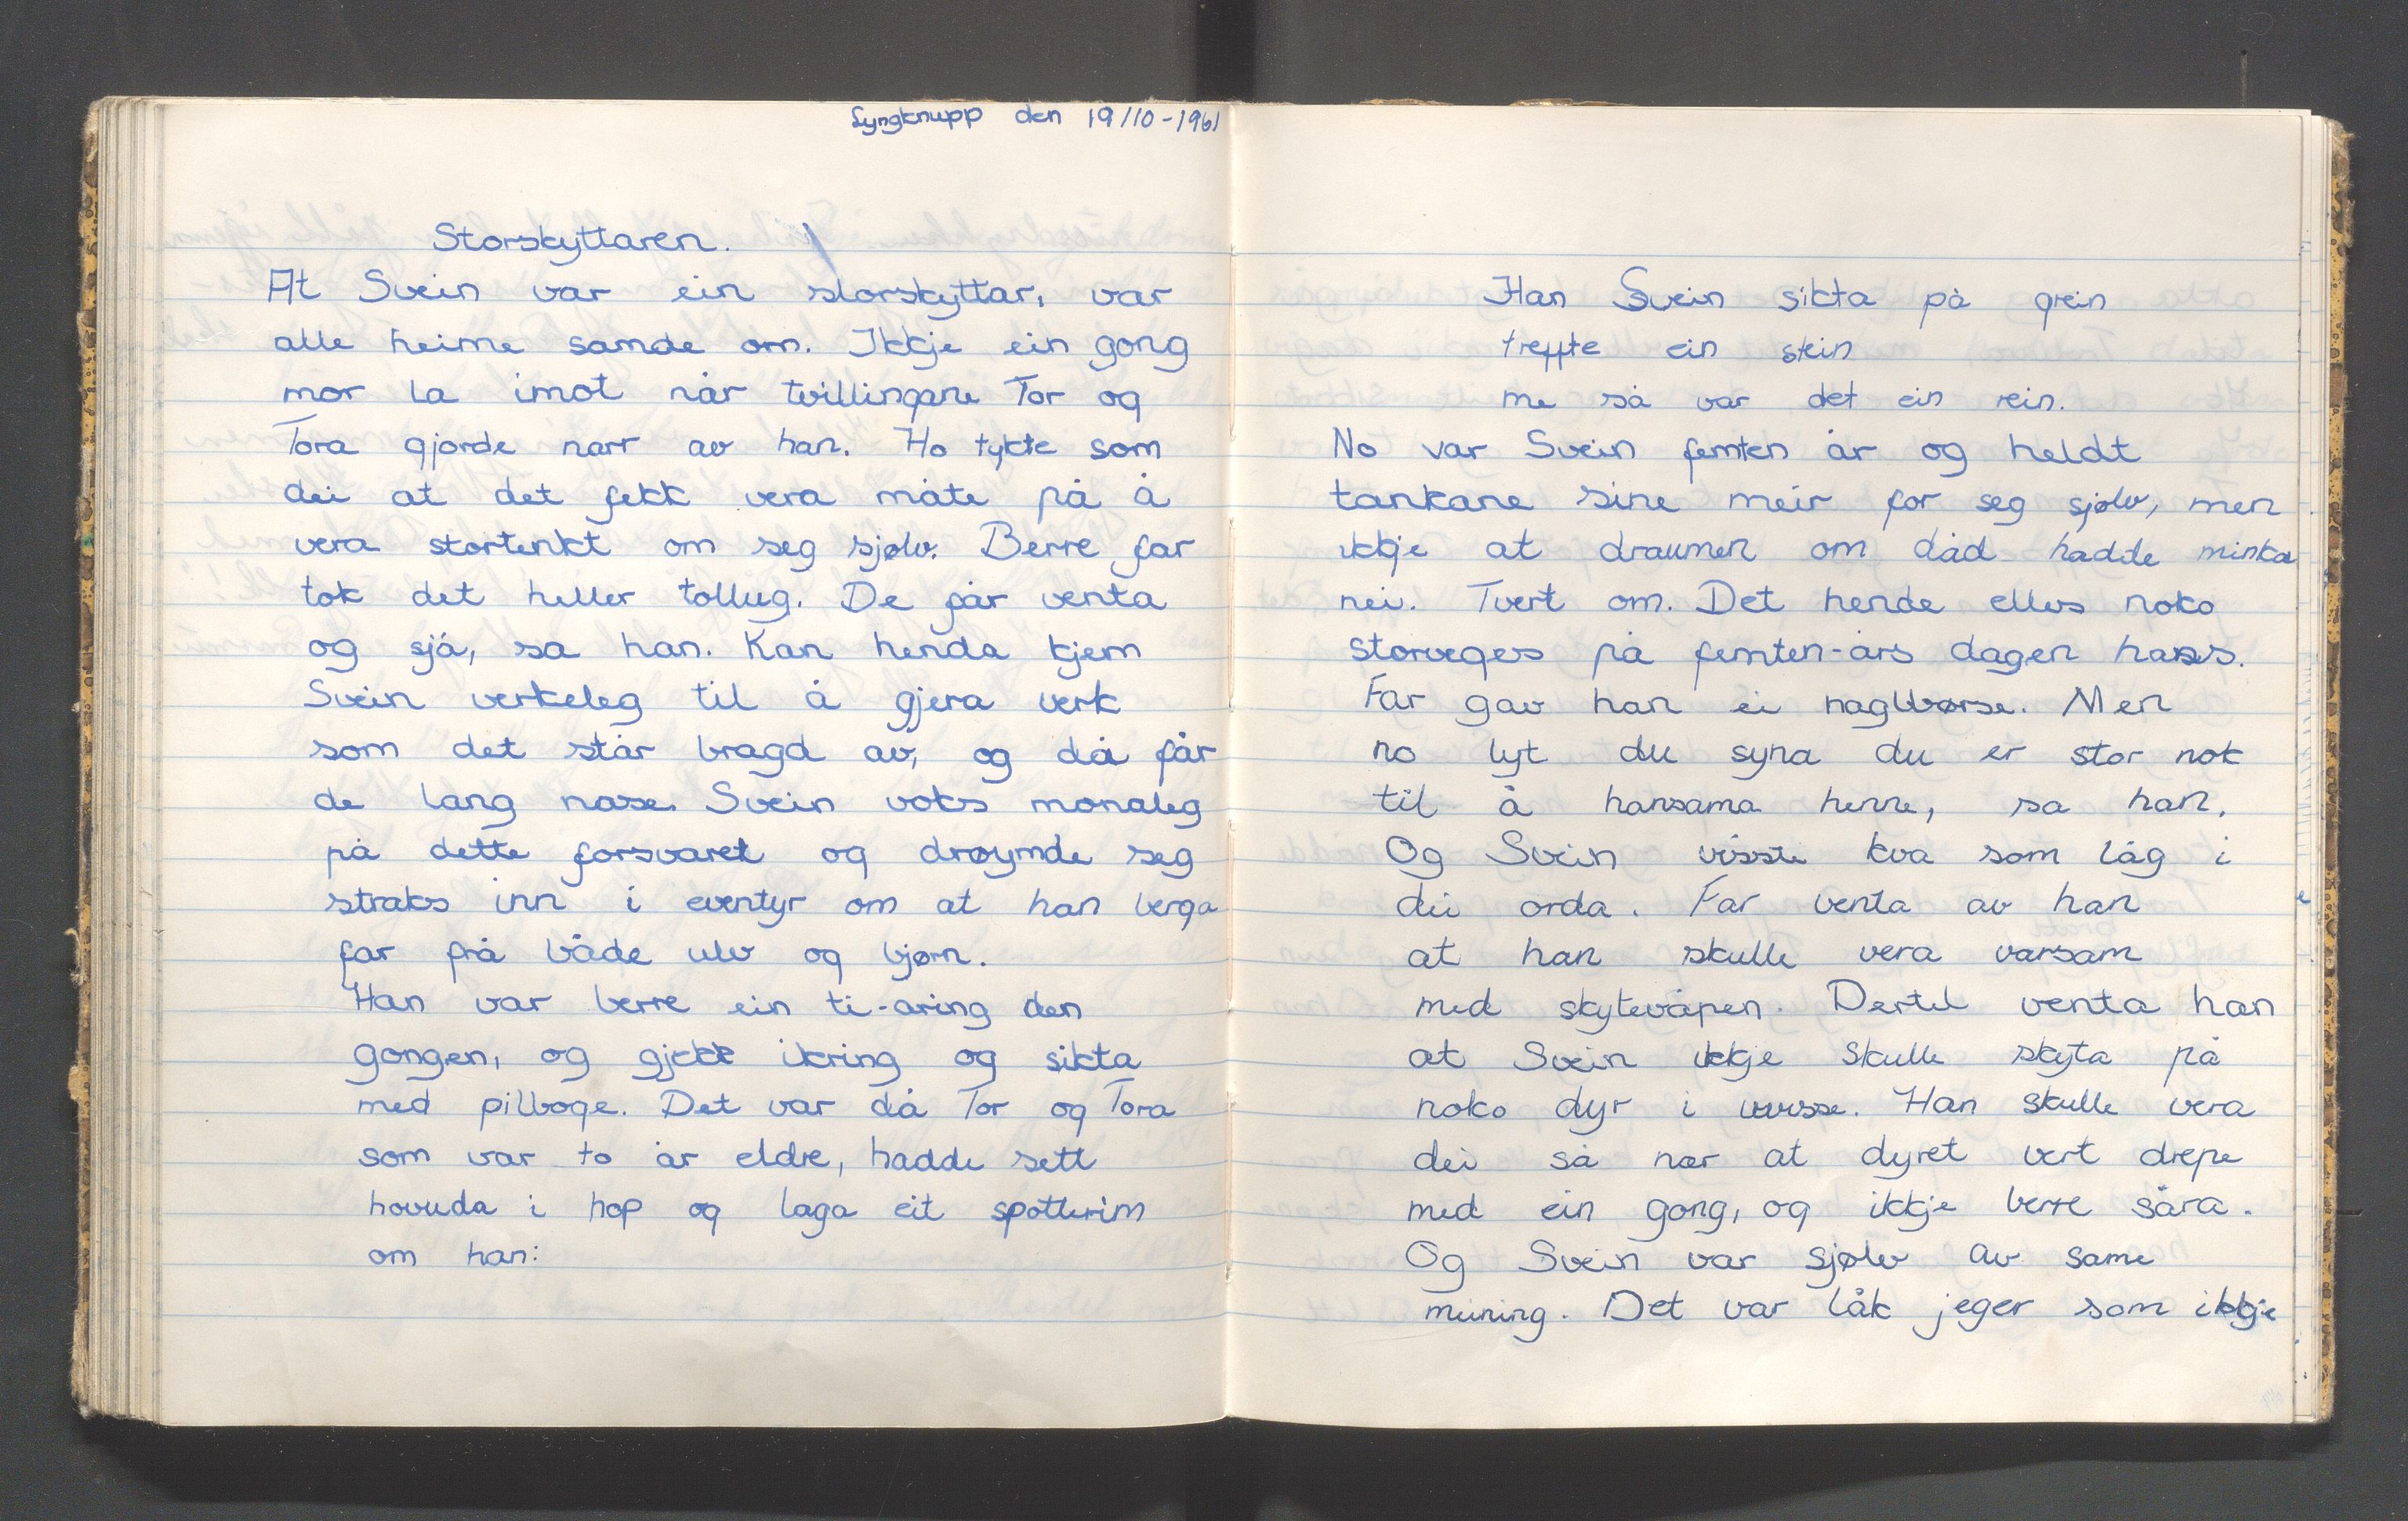 Lyngknupp den 19/10-1961
Storskyttaren.
At Svein var ein storskyttar, var
alle heime samde om. Ikkje ein gong
mor la imot når tvillingane Tor og
Tora gjorde narr av han. Ho tykte som
dei at det fekk vera måte på å
vera stortenkt om seg sjølv. Berre far
tok det heller tollug. De får venta
og sjå, sa han. Kan henda kjem
Svein verkeleg til å gjera verk
som det står bragd av, og då får
de lang nase. Svein voks monaleg
på dette forsvaret og drøymde seg
straks inn i eventyr om at han berga
far frå både ulv og bjørn.
Han var berre ein ti-åring den
gongen, og gjekk ikring og sikta
med pilboge. Det var då Tor og Tora
som var to år eldre, hadde sett
hovuda i hop og laga eit spotterim
om han:
Han Svein sikta på grein
treffte ein stein
me så var det ein rein.
No var Svein femten år og heldt
tankane sine meir for seg sjølv, men
ikkje at draumen om dåd hadde minka
nei. Tvert om. Det hende elles noko
storveges på femten-års dagen hans.
Far gav han ei haglbørse. Men
no lyt du syna du er stor nok
til å hansama henne, sa han.
Og Svein visste kva som låg i
dei orda. Far venta av han
at han skulle vera varsam
med skytevåpen. Dertil venta han
at Svein ikkje skulle skyta på
noko dyr i uvisse. Han skulle vera
dei så nær at dyret vert drepe
med ein gong, og ikkje berre såra.
Og Svein var sjølv av same
meining. Det var låk jeger som ikkje